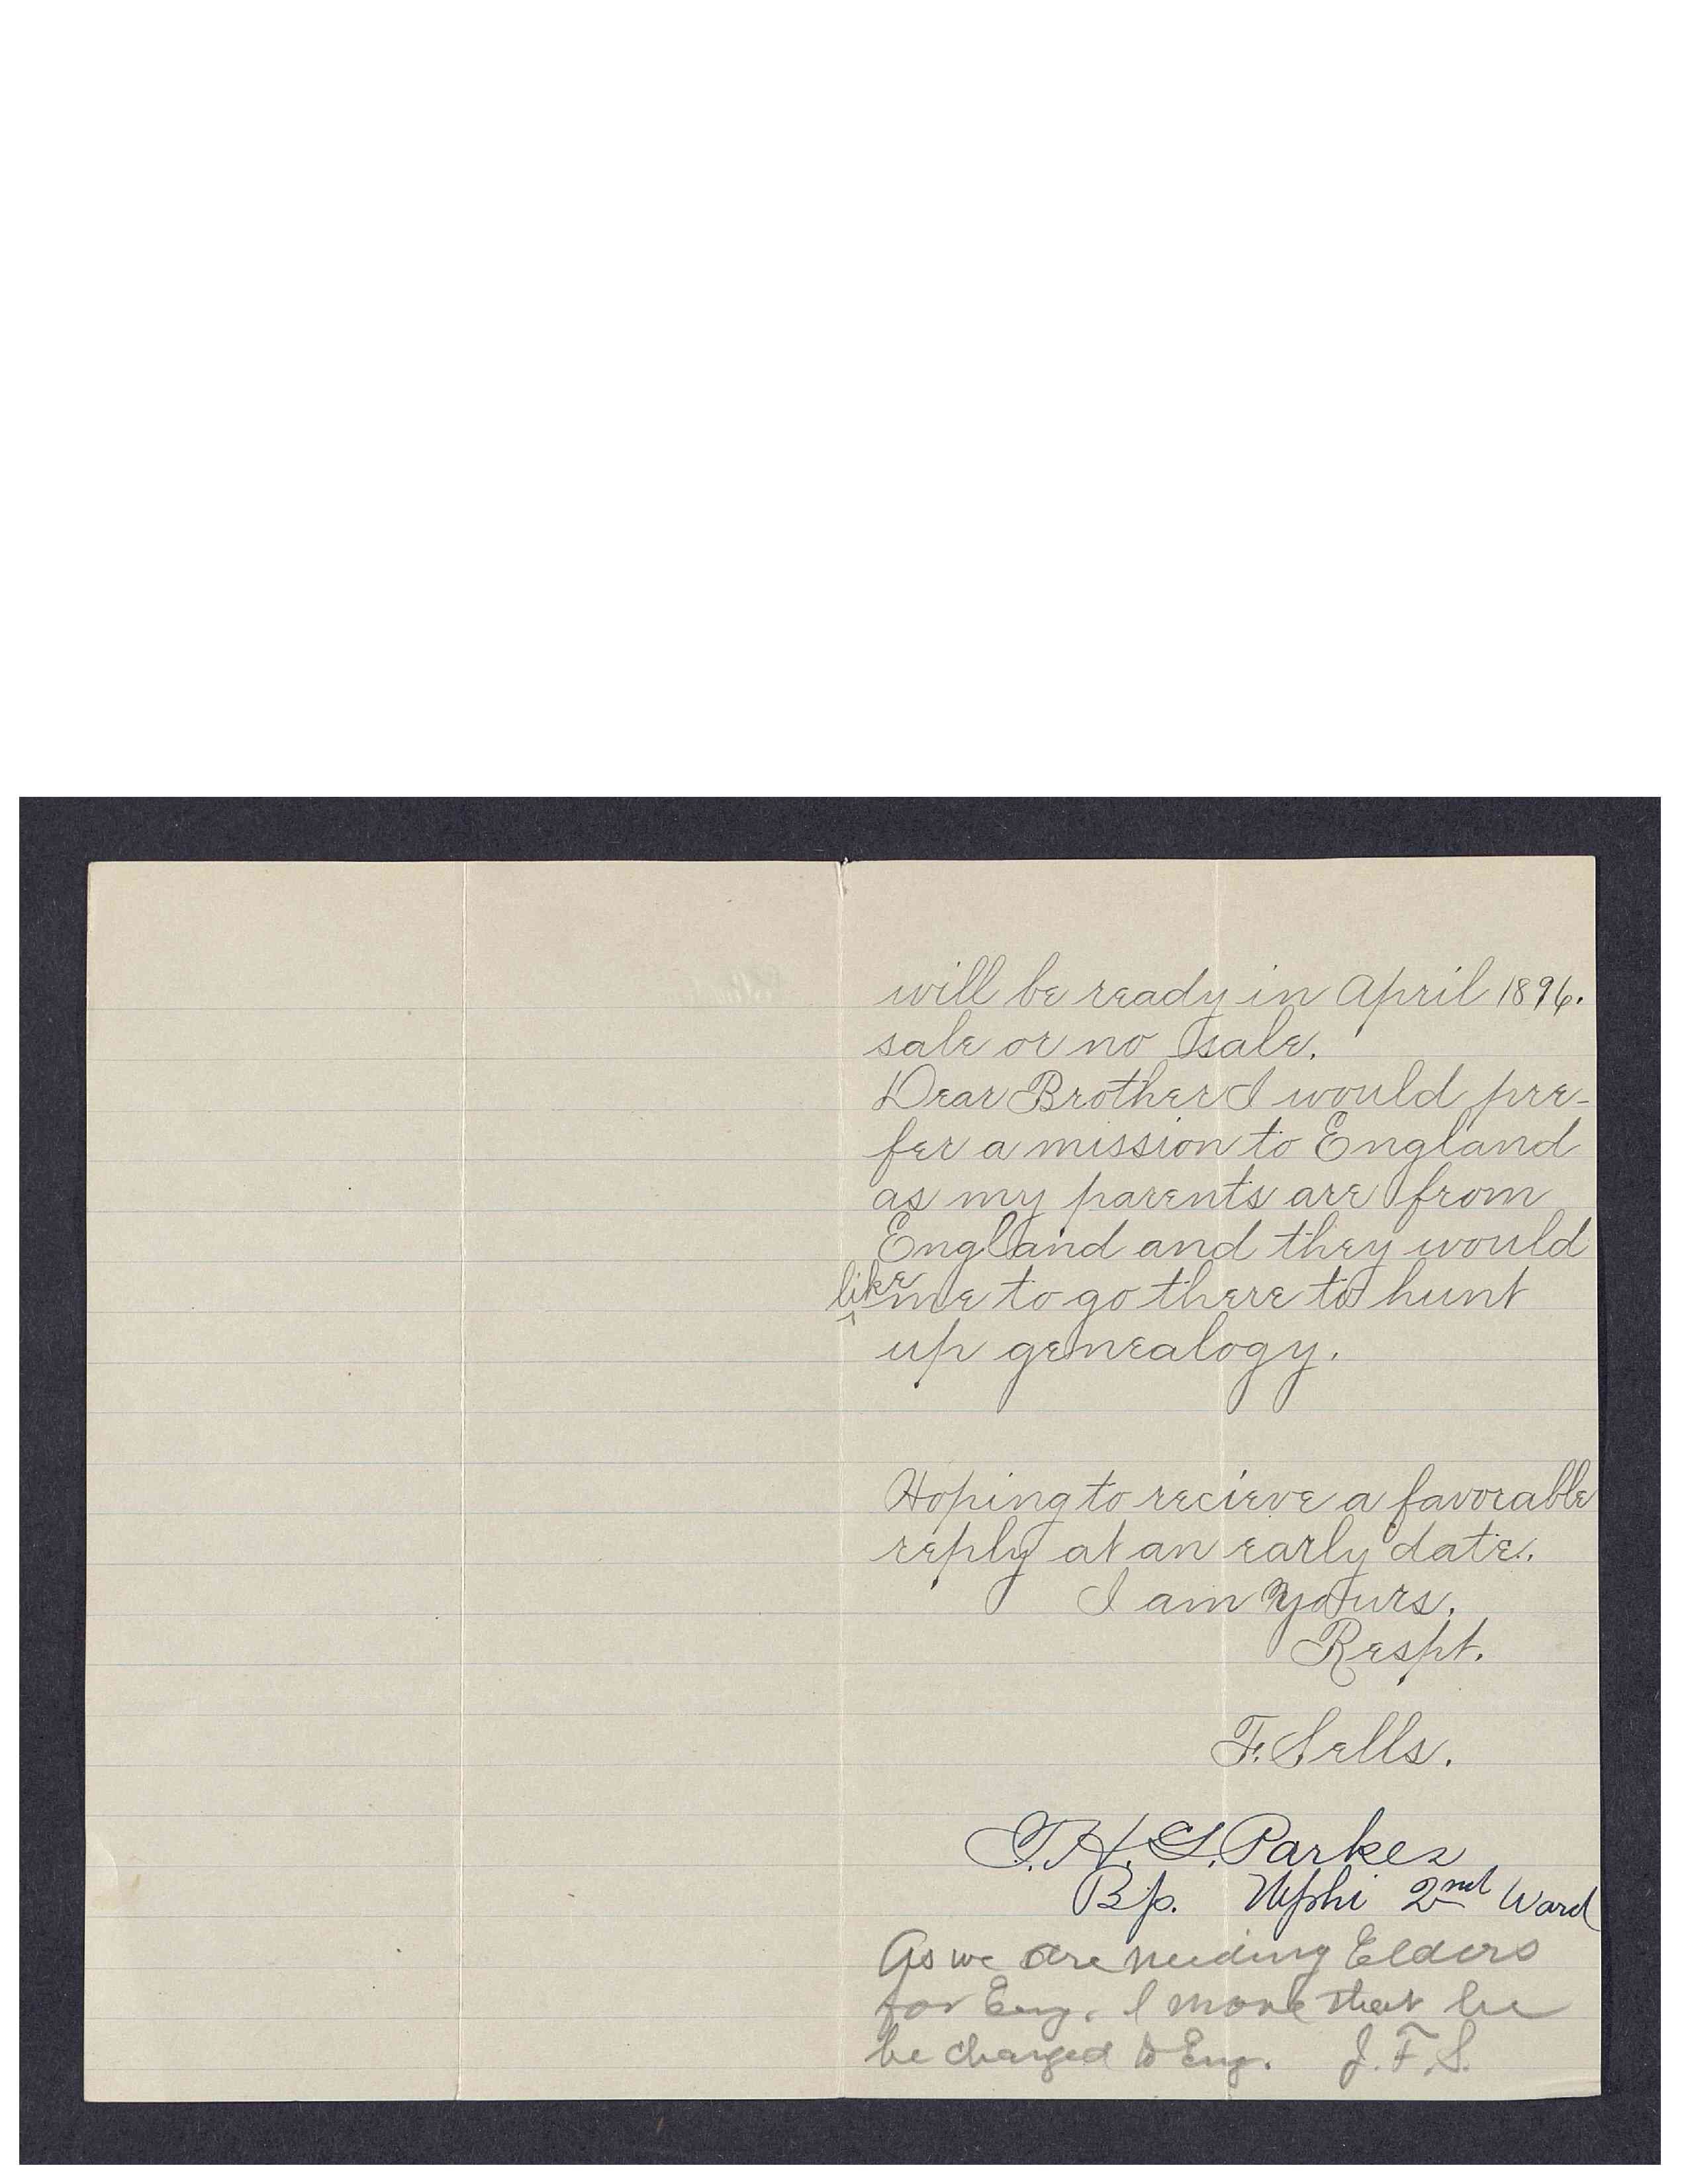 will be ready in April 1896.
sale or no sale.
Dear Brother I would pre-
fer a mission to England
as my parents are from
England and they would
like me to go there to hunt
up genealogy.
Hoping to recieve a favorable
reply at an early date.
I am yours.
Respt.
F. Sells.
T. H. G. Parkes
Bp. Nephi 2nd Ward
As we are needing Elders
for Eng. I move that he
be changed to Eng. J. F. S.